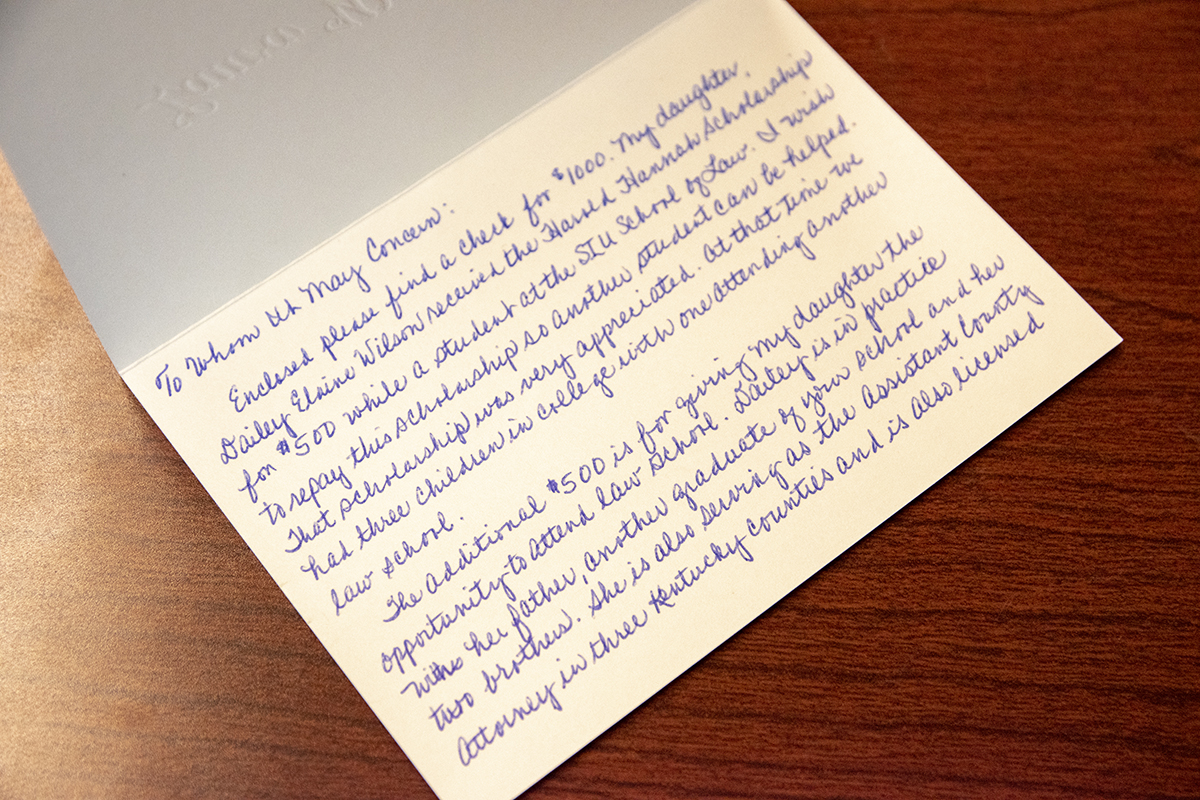 To Whom It May Concern:
Enclosed please find a check for $1000. My daughter,
Dailey Elaine Wilson received the Harold Hannah Scholarship
for $500 while a student at the SIU School of Law. I wish
to repay this scholarship so another student can be helped.
That scholarship was very appreciated. At that time we
had three children in college with one attending another
law school.
The additional $500 is for giving my daughter the
opportunity to attend law school. Dailey is in practice
with her father, another graduate of your school and her
two brothers. She is also serving as the Assistant County
Attorney in three Kentucky counties and is also licensed